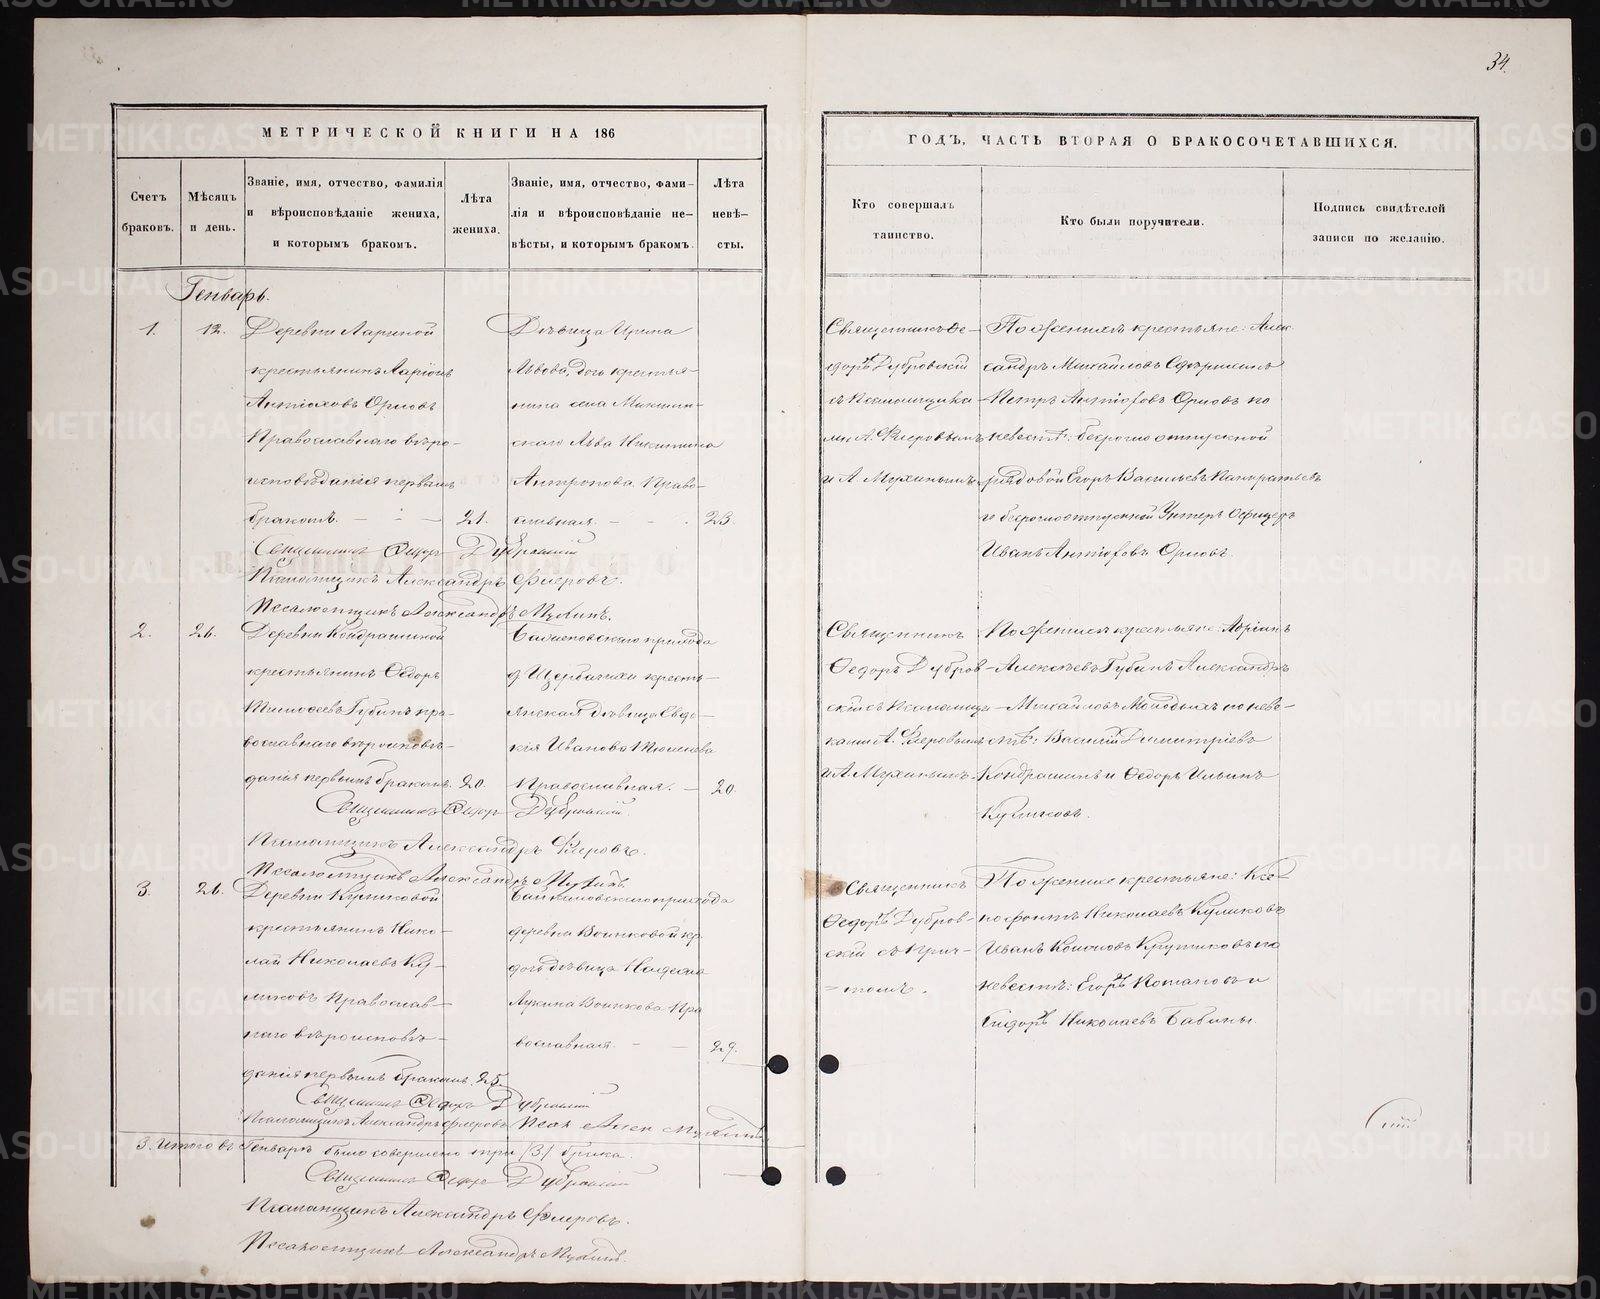 34.
МЕТРИЧЕСКОЙ КНИГИ НА 186
Счетъ
браковъ.
Мѣсяцъ
и день.
Званіе, имя, отчество, фамилія
и вѣроисповѣданіе жениха,
и которымъ бракомъ.
Лѣта
жениха.
Званіе, имя, отчество, фами-
лія и вѣроисповѣданіе не-
вѣсты, и которымъ бракомъ.
Лѣта
невѣ-
сты.
Генварь.
1.
12.
Деревни Лариной
крестьянинъ Ларіонъ
Антіоховъ Орловъ
Православнаго вѣро-
исповѣданія первымъ
бракомъ.
21.
Дѣвица Ирина
Львова, дочь крестья-
нина села Микшин-
скаго Льва Никитина
Антропова. Право-
славная.
23.
Священникъ Ѳедоръ Дубровскій
Псаломщикъ Александръ Флеровъ.
Псаломщикъ Александръ Мухинъ.
2.
26.
Деревни Кондрашиной
крестьянинъ Ѳедоръ
Тимофеевъ Губинъ пра-
вославнаго вѣроисповѣ-
данія первымъ бракомъ.
20.
прихода
д. Щербачихи кресть-
янская дѣвица Евдо-
кія Иванова
Православная.
20.
Священникъ Ѳедоръ Дубровскій.
Псаломщикъ Александръ Флеровъ.
Псаломщикъ Александръ Мухинъ.
3.
26.
Деревни Куликовой
крестьянинъ Нико-
лай Николаевъ Ку-
ликовъ Православ-
наго вѣроисповѣ-
данія первымъ бракомъ.
25.
прихода
деревни Воинковой кр.
дочь дѣвица
Лукина Воинкова Пра
вославная.
29.
Священникъ Ѳедоръ Дубровскій
Псаломщикъ Александръ Флеровъ Псал. Алек. Мухинъ
3. Итого въ Генварѣ было совершено три /3/ брака.
Священникъ Ѳедоръ Дубровскій
Псаломщикъ Александръ Флеровъ.
Псаломщикъ Александръ Мухинъ.
ГОДЪ, ЧАСТЬ ВТОРАЯ О БРАКОСОЧЕТАВШИХСЯ.
Кто совершалъ
таинство.
Кто были поручители.
Подпись свидѣтелей
записи по желанію.
Священникъ Ѳе-
доръ Дубровскій
съ Псаломщика-
ми А. Флеровымъ
и А. Мухинымъ
По женихѣ крестьяне: Алек-
сандръ Михайловъ
Петръ Антіоховъ Орловъ по
невестѣ: безсрочно отпускной
рядовой Егоръ Васильевъ Панкратьевъ
и безсрочноотпускной Унтеръ Офицеръ
Иванъ Антіоховъ Орловъ.
Священникъ
Ѳедоръ Дубров-
скій съ Псаломщи-
ками А. Флеровымъ
и А. Мухинымъ
По женихѣ крестьяне:
Алексѣевъ Губинъ Александръ
Михайловъ Молодыхъ по невѣ-
стѣ: Василій Димитріевъ
Кондрашинъ и Ѳедоръ Ильинъ
Куликовъ.
Священникъ
Ѳедоръ Дубров-
скій съ прич-
томъ.
По женихе крестьяне: Ксе-
нофонтъ Николаевъ Куликовъ
Иванъ Кононовъ Кругликовъ по
невестѣ: Егоръ Потаповъ и
Сидоръ Николаевъ Бабины.
METRIKI.GASO-URAL.RU